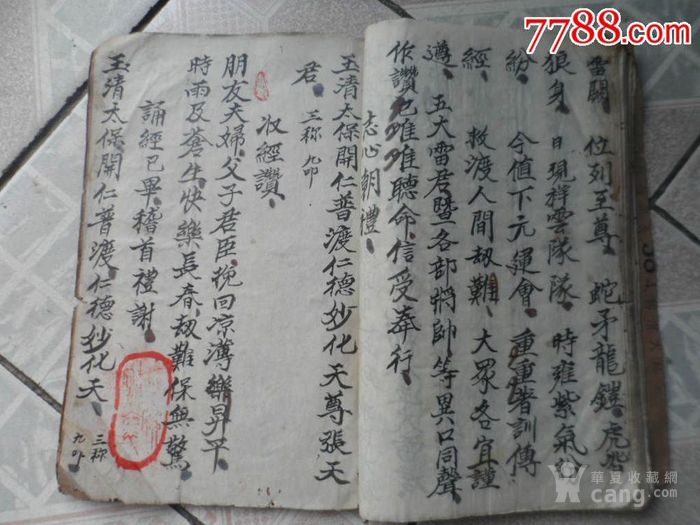 7788.com
雷闕 位列至尊 蛇矛龍鎧 虎
狼身 日現祥雲隊隊 時雍紫氣
紛 今值下元運會 重重著訓傳
經 救渡人間刼難 大眾各宜謹
遵 五大雷君暨各部將帥等異口同聲
作讚也唯唯聽命信受奉行
志心朝禮
玉清太保開仁普渡仁德妙化天尊張天
君 三称 九叩
收經讚
朋友夫婦父子君臣挽回凉薄樂昇平
時雨及蒼生快樂長春刼難保無驚
誦經已畢稽首禮謝
玉清太保開仁普渡仁德妙化天
三称
九叩
華夏收藏網
cang.com